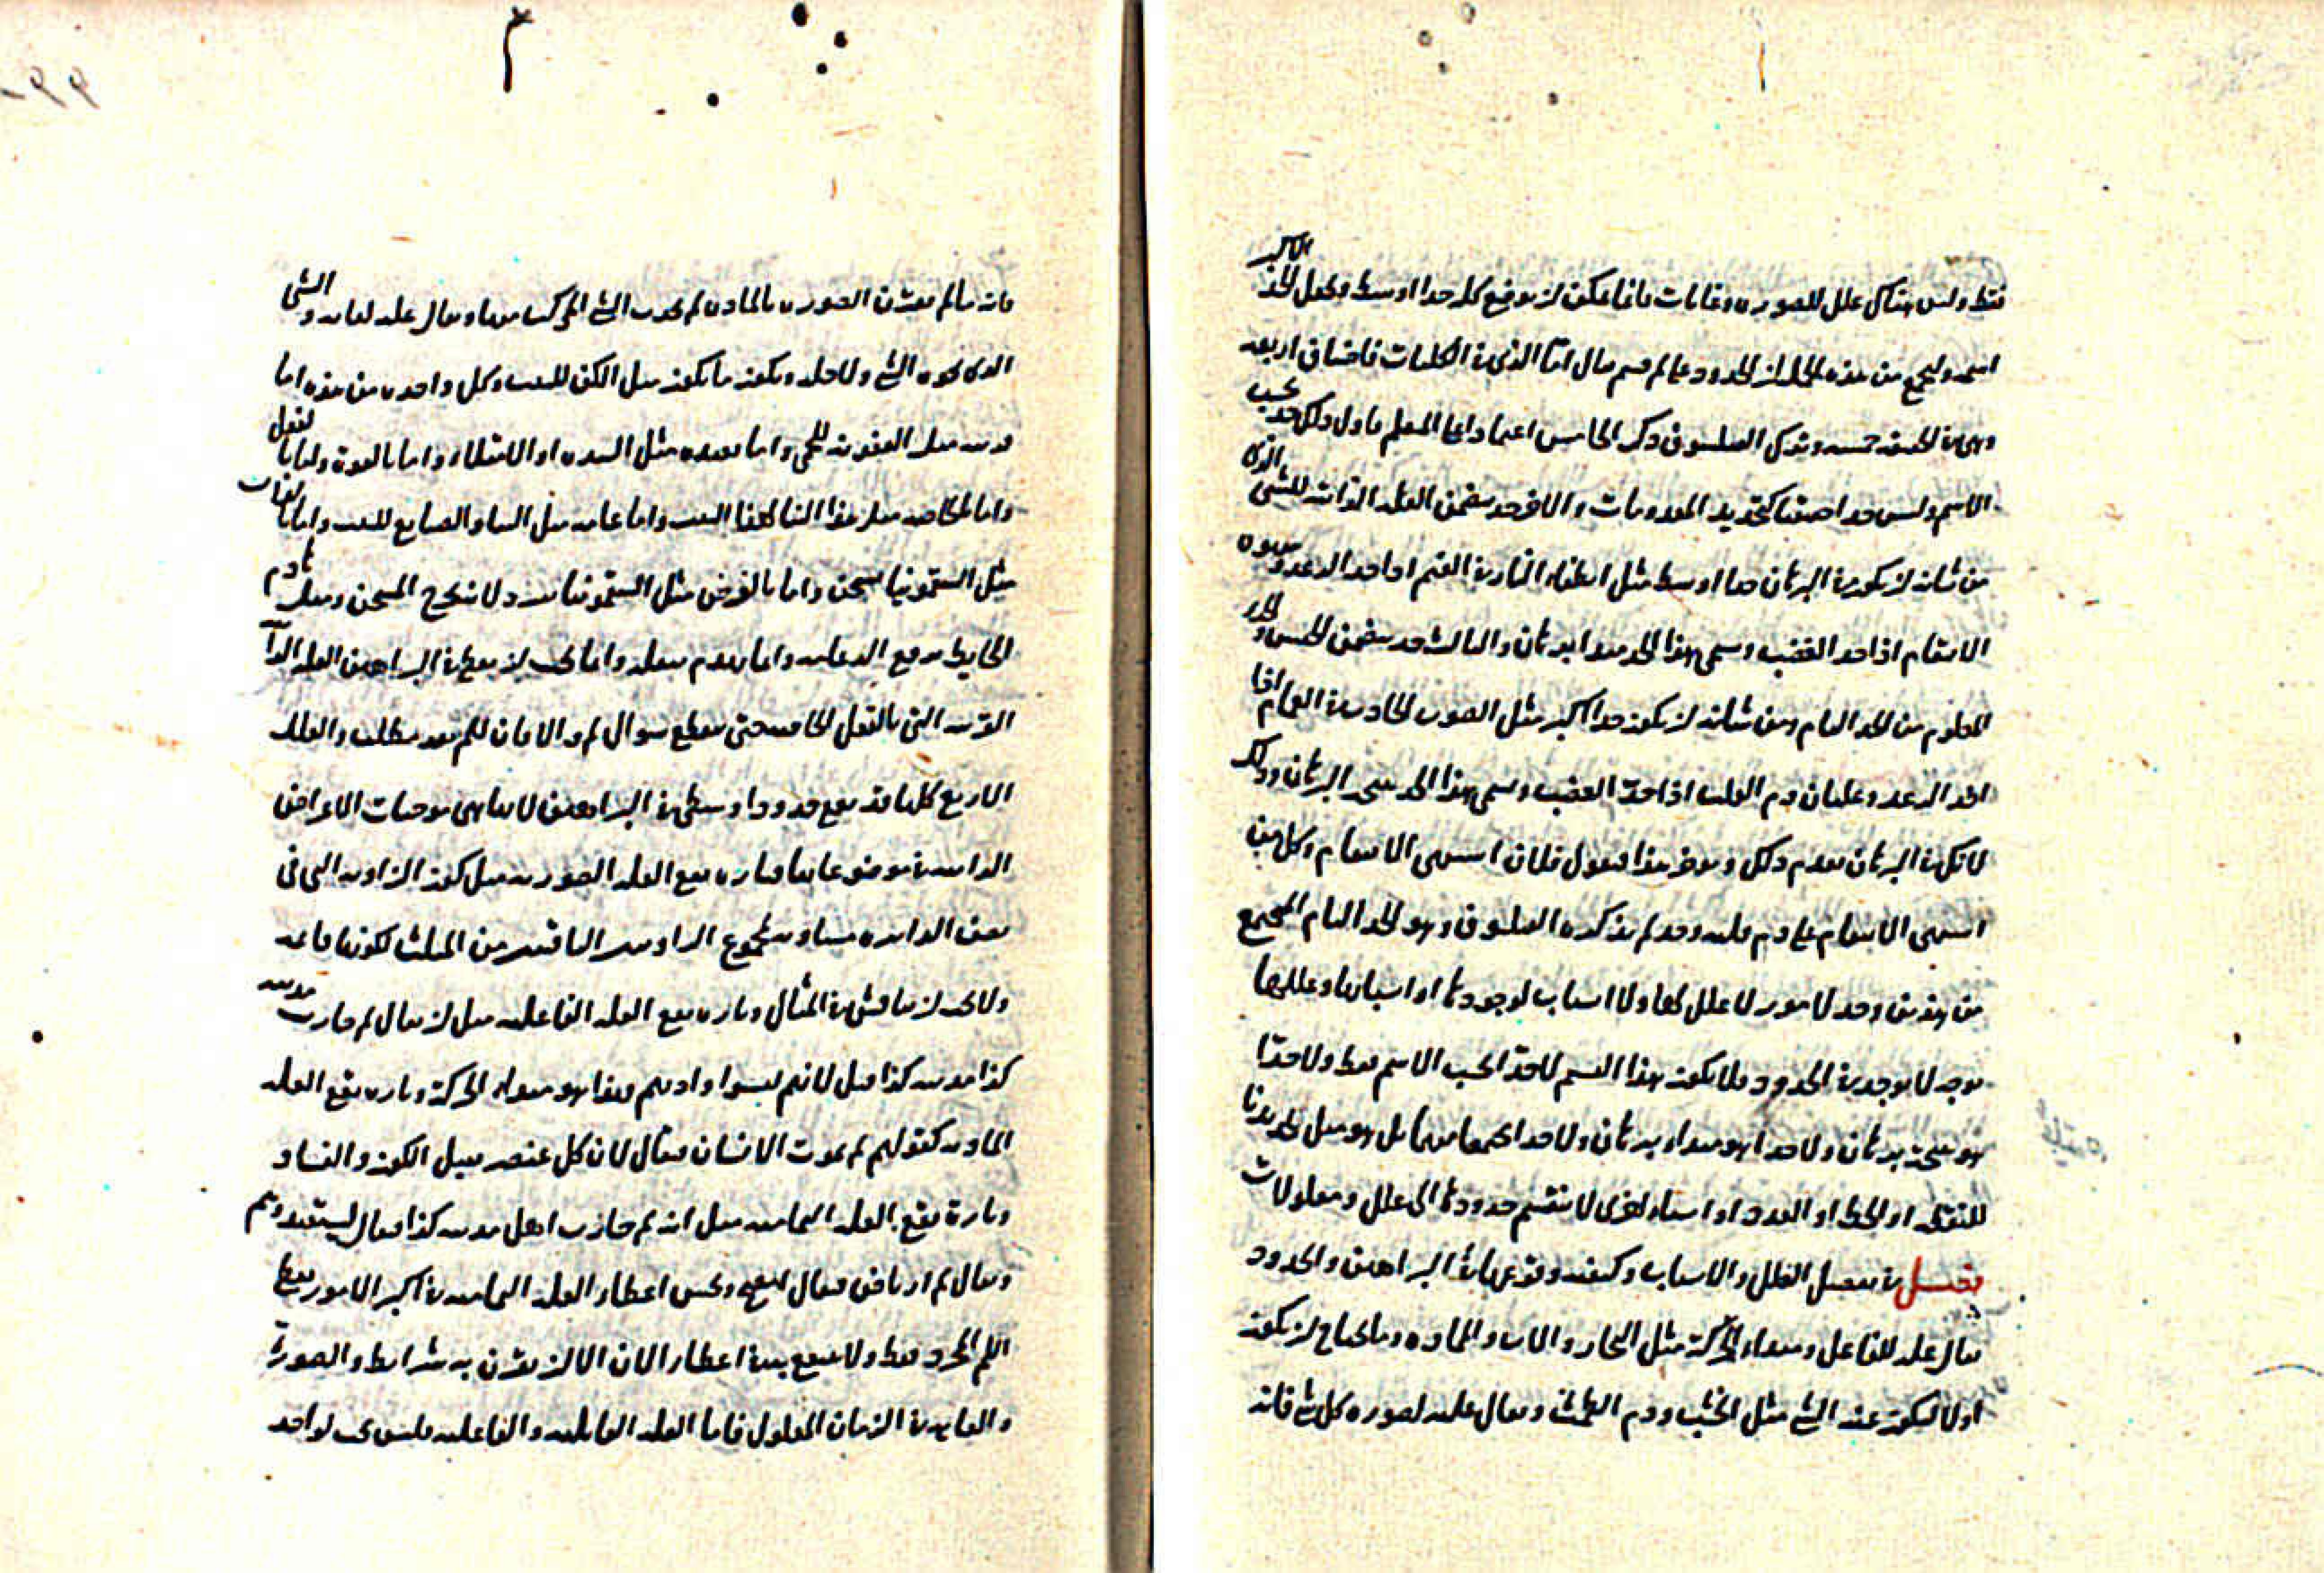 فقط وليس هناك علل للصورة وغايات فانما يمكن ان يوضع كل حدا اوسط ويجعل الحد الاكبر
اسمه وليجمع من هذه الجملة ان الحدود على ما قسم قال اما الذي في الكليات فاصناف اربعة
وهي في الحقيقة خمسة وترك الفيلسوف ذكر الخامس اعتمادا على المعلم فاول ذلك حد بحسب
الاسم وليس حدا حقيقيا كتحديد المعدومات والاخر حد يتضمن العلة الذاتية للشيء الذي
من شانه ان يكون في البرهان حدا اوسط مثل انطفاء النار في الغيم اذا حد الرعد وشهوة
الانتقام اذا حد الغضب ويسمى هذا الحد مبدا برهان والثالث حد يتضمن الجنس والحد
المعلوم من الحد التام ومن شانه ان يكون حدا اكبر مثل الصوت الحادث في الغمام اذا
حد الرعد وغليان دم القلب اذا حد الغضب ويسمى هذا الحد نتيجة البرهان وذلك
لانك في البرهان تقدم ذلك وتوخر هذا فتقول فلان اشتهى الانتقام وكل من
اشتهى الانتقام غلى دم قلبه وحد لم يذكره الفيلسوف وهو الحد التام المجتمع
من هذين وحد لامور لا علل لها ولا اسباب لوجودها او اسبابها وعللها
بوجه لا يوجد في الحدود فلا يكون هذا القسم لا حدا بحسب الاسم فقط ولا حدا
هو نتيجة برهان ولا حدا هو مبداء برهان ولا حدا مجتمعا منهما بل هو مثل تحديدنا
للنقطة او الخط او الوحدة او اشياء اخرى لا تنقسم حدودها الى علل ومعلولات
فصل في تفصيل العلل والاسباب وكيفية وقوعها في البراهين والحدود
يقال علة للفاعل ومبداء الحركة مثل النجار والاب والمادة وما يحتاج ان يكون
اولا ليكون عنه الشي مثل الخشب ودم الطمث ويقال علة لصورة كل شي فانه
٣
فانه ما لم تقترن الصورة بالمادة لم يحدث الشي المركب منهما ويقال علة لغاية والشي
الذي نحوه الشي ولاجله ويكون ما يكون مثل الكن للبيت وكل واحدة من هذه اما
قريبة مثل العفونة للحمى واما بعيدة مثل السدة او الامتلاء واما بالقوة واما بالفعل
واما خاصة مثل هذا البناء لهذا البيت واما عامة مثل البناء والصانع للبيت واما بالذات
مثل السقمونيا يسخن واما بالعرض مثل السقمونيا يبرد لانه يخرج المسخن ومثل هادم
الحايط يرفع الدعامة واما يهدم بثقله وانما يجب ان يعطى في البراهين العلة الذا
القريبة التي بالفعل الخاصة حتى ينقطع سوال لم والا فان اللم بعد مطلب والعلل
الاربع كلها قد تقع حدودا وسطى في البراهين لانها هي موجبات الاعراض
الذاتية في موضوعاتها فتارة تقع العلة الصورية مثل كون الزاوية التي في
نصف الدايرة مساوية لمجموع الزاويتين الباقيتين من المثلث لكونها قايمة
ولا يجب ان يناقش في المثال وتارة تقع العلة الفاعلية مثل ان يقال لم حارب مدينة
كذا مدينة كذا فيقال لانهم بيتوا واذوهم فهذا هو مبداء الحركة وتارة تقع العلة
المادية كقولهم لم يموت الانسان فيقال لان كل عنصر يقبل الكون والفساد
وتارة تقع العلة التمامية مثل انه لم حارب اهل مدينة كذا فيقال ليستعبدوهم
ويقال لم ارتاض فيقال ليصح ويحسن اعطاء العلة التمامية في اكثر الامور يقع
اللم المجرد فقط ولا ينتفع به في اعطاء الان الا ان يقترن به شرايط والصورة
والغاية في الزمان المعلول فاما العلة القابلة والفاعلية فليس يجب لواحد